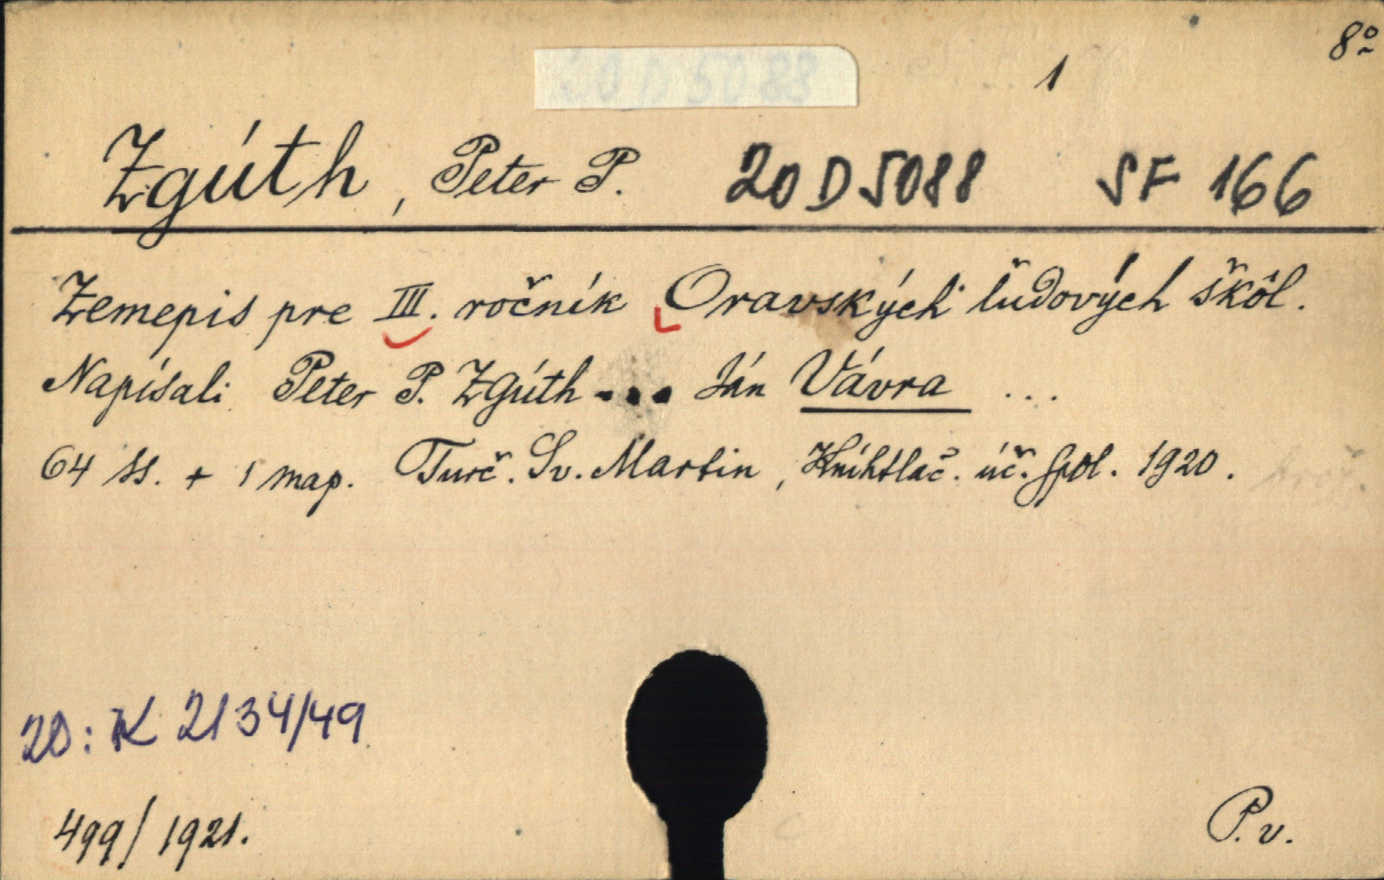 8°
20 D 5088
1
Zgúth, Peter P. 20 D 5088 SF 166
Zemepis pre III. ročník Oravských ľudových škôl.
Napísali Peter P. Zgúth ... Ján Vávra ...
64 ss. + 1 map. Turč. Sv. Martin, Kníhtlač. úč. spol. 1920. brož.
20: K 2134/49
499/1921.
P. v.